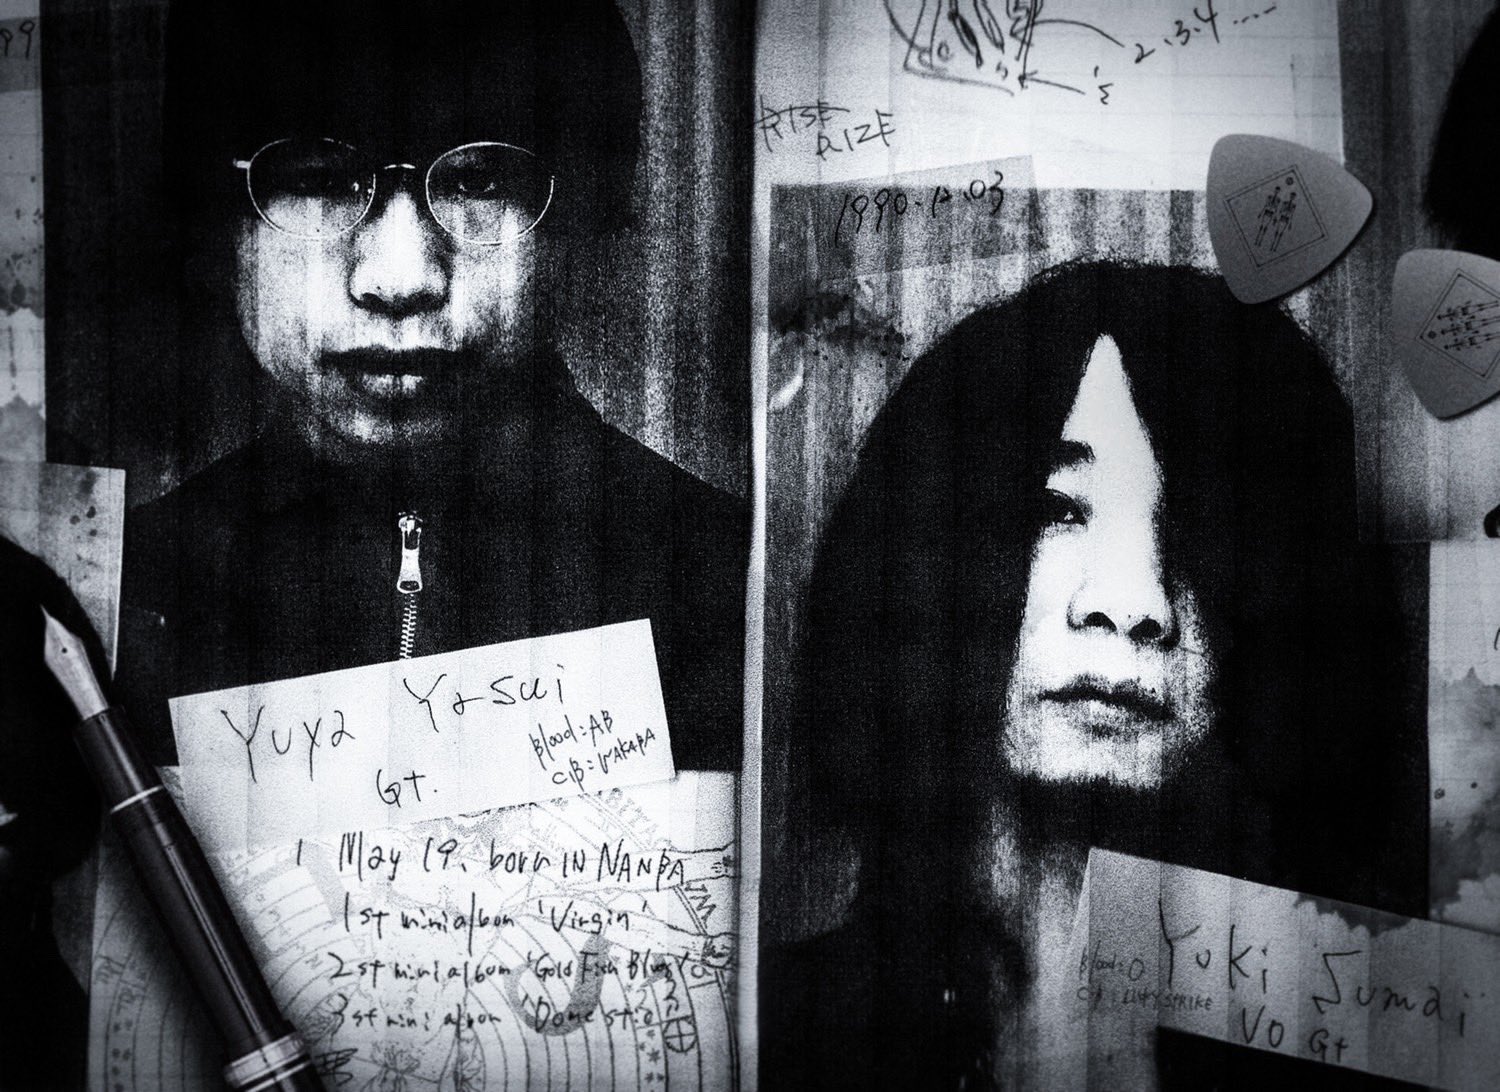 2.3.4 ....
RISE
RIZE
1990.12.03
Yuya Yasui
Gt.
Blood:AB
CB=WAKABA
1 May 19. born IN NANBA
1st mini album 'Virgin'
2st mini album 'Gold Fish Blues'
3st mini album 'Domestic'
Yuki Sumai
Vo Gt
Blood:O